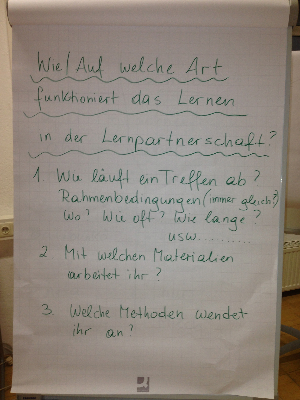 Wie/Auf welche Art
funktioniert das Lernen
in der Lernpartnerschaft?
1. Wie läuft ein Treffen ab?
Rahmenbedingungen (immer gleich?)
Wo? Wie oft? Wie lange?
usw..........
2 Mit welchen Materialien
arbeitet ihr?
3. Welche Methoden wendet
ihr an?